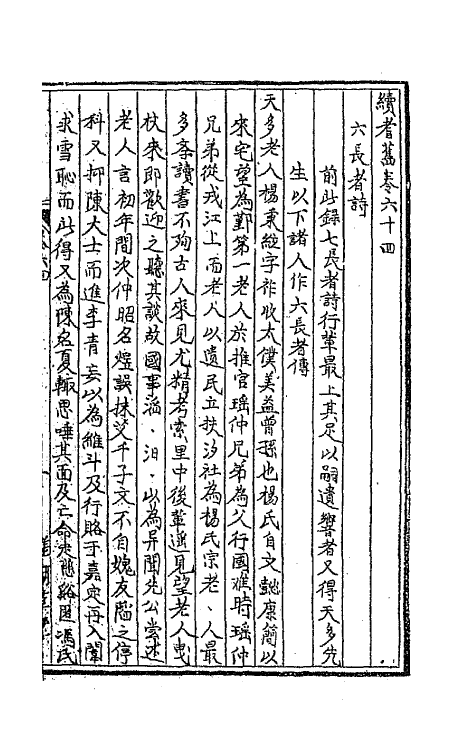 續耆舊卷六十四
六長者詩
前此錄七長者詩行輩最上其足以嗣遺響者又得天多先
生以下諸人作六長者傳
天多老人楊秉紘字祚收太僕美益曾孫也楊氏自文懿康簡以
來宅望為鄞第一老人於推官瑤仲兄弟為父行國難時瑤仲
兄弟從戎江上而老人以遺民立扶汐社為楊氏宗老、人最
多泰讀書不殉古人來見尤精考索里中後輩遜見望老人曳
杖來即歡迎之聽其談故國事滔、汩、以為異聞先公嘗述
老人言初年間沈仲昭名煌誤抹艾千子文不自媿友膓之停
科又抑陳大士而進李青 妄以為維斗及行賂于嘉定再入闈
求雪恥而此得又為陳名夏輙思唾其面及亡命走慈谿馮氏